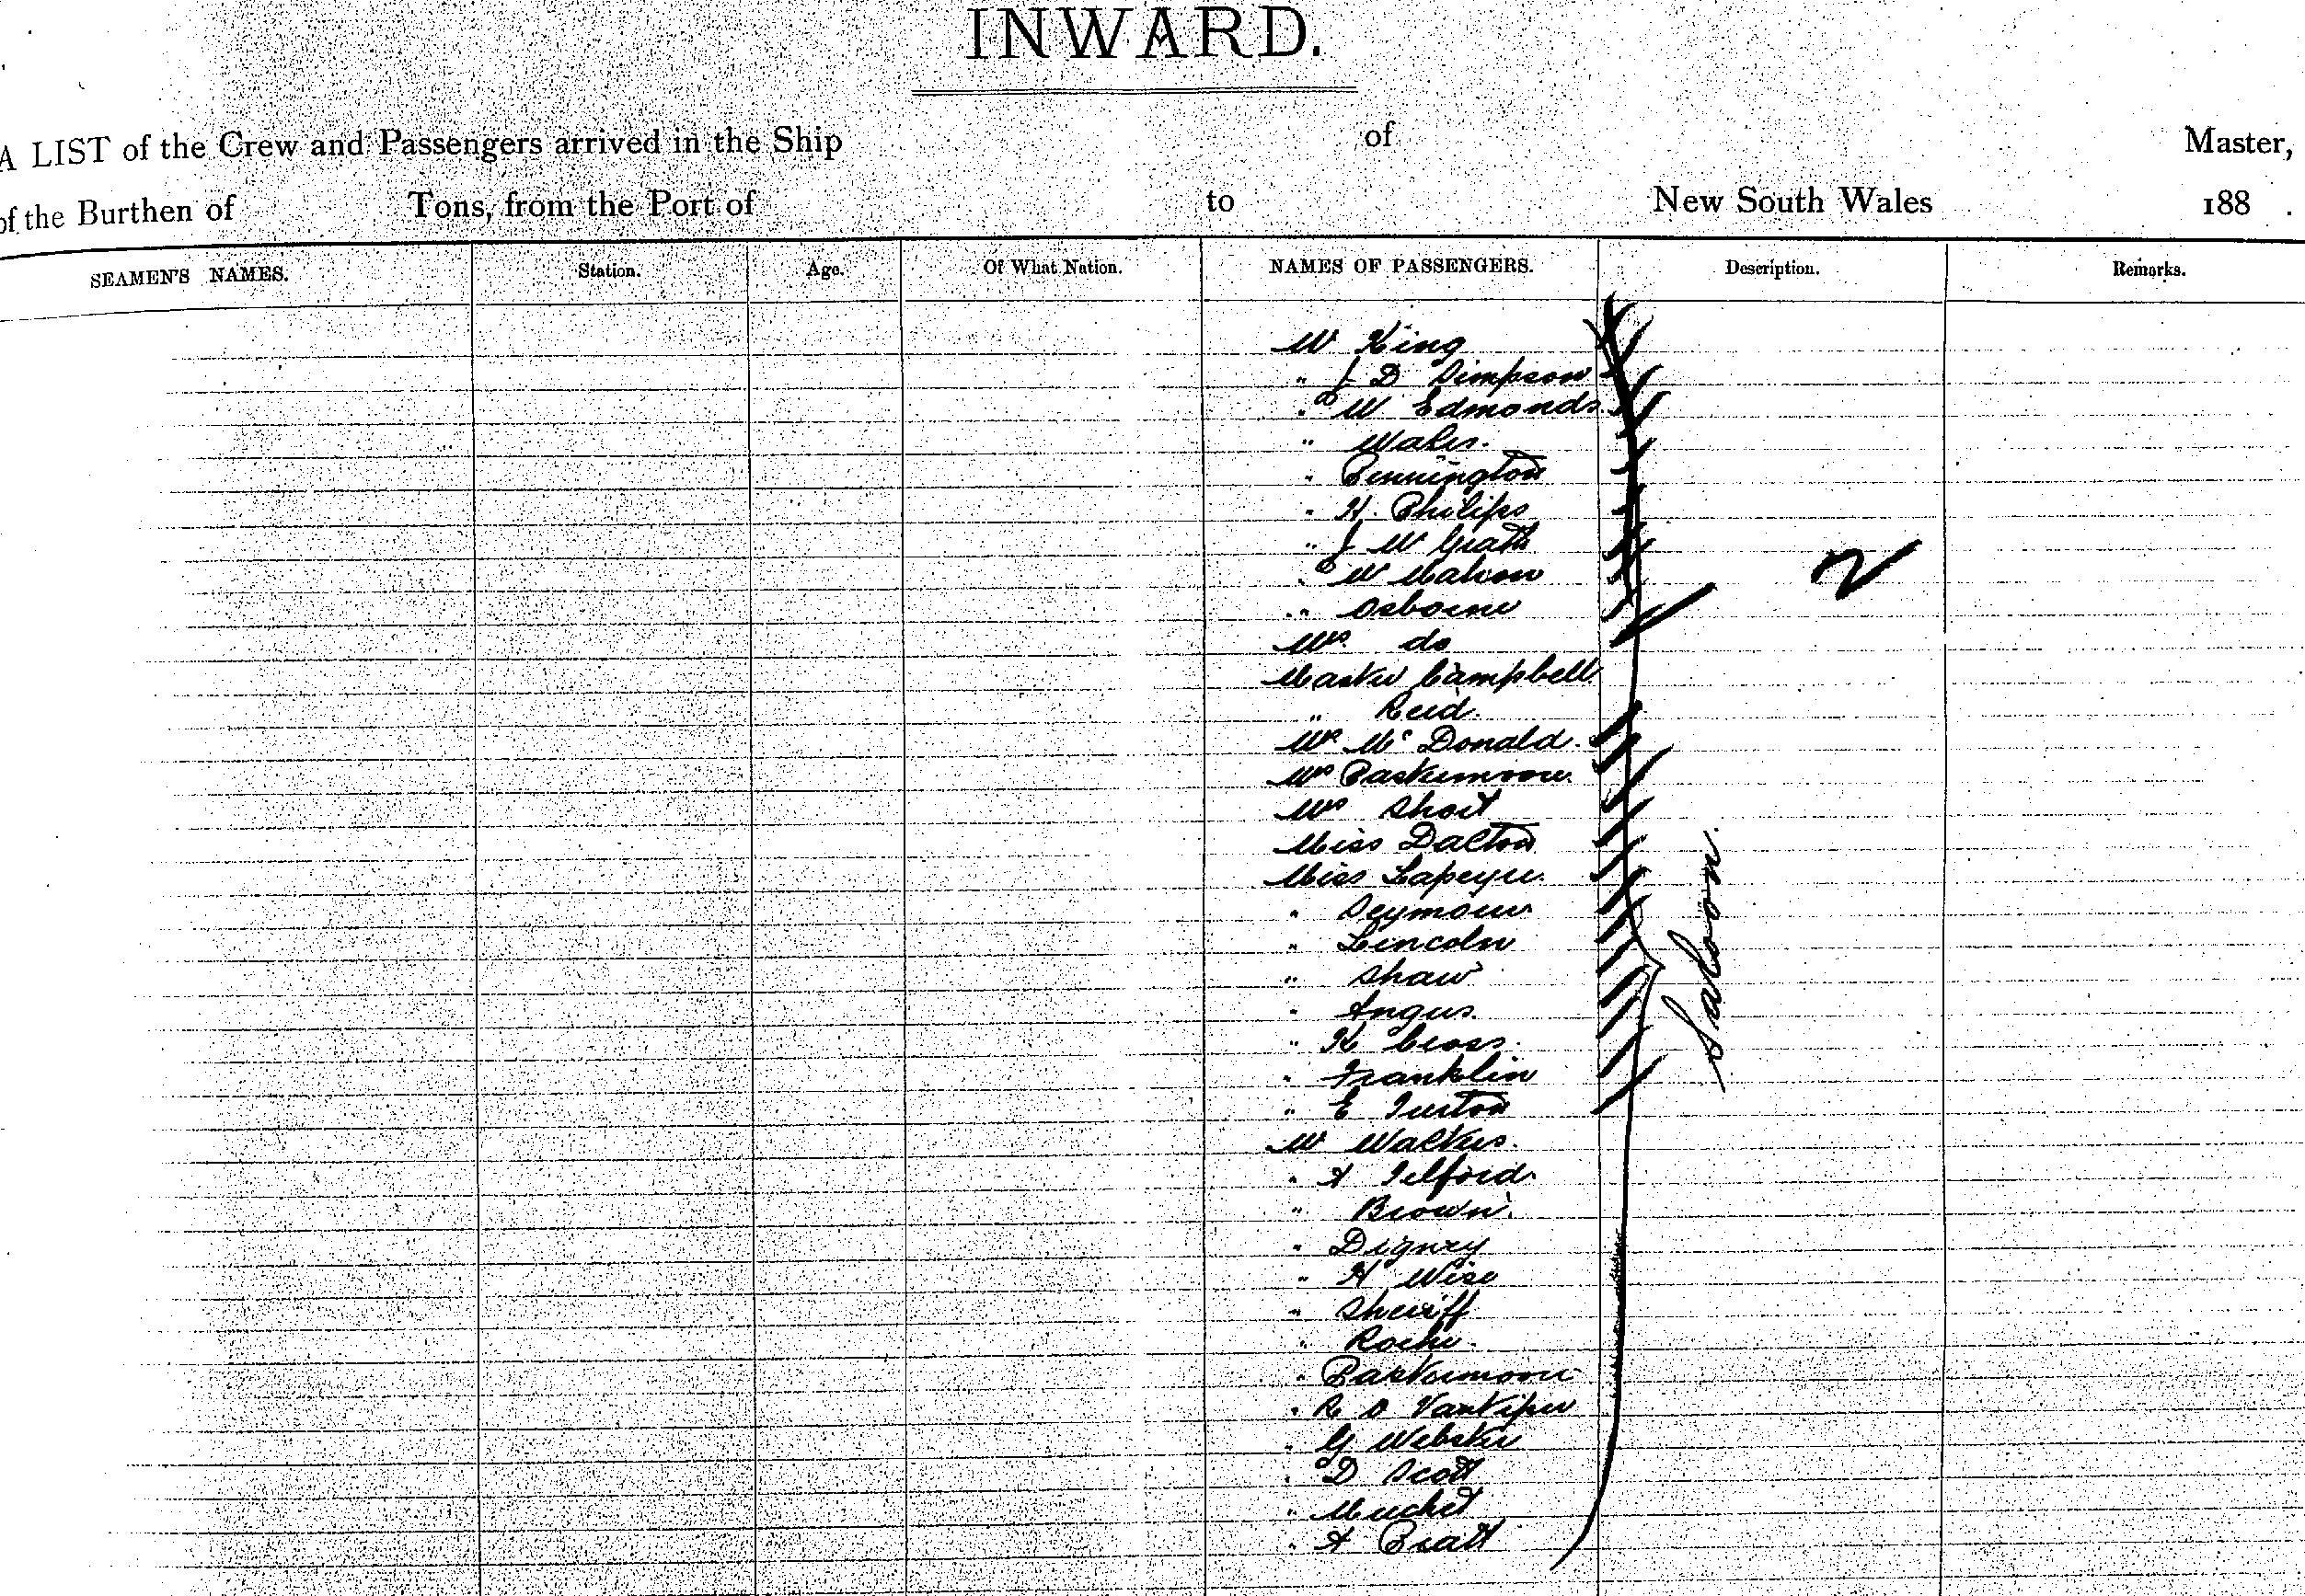 INWARD.
A LIST of the Crew and Passengers arrived in the Ship of Master,
of the Burthen of Tons, from the Port of to New South Wales 188 .
SEAMEN'S NAMES. Station. Age. Of What Nation. NAMES OF PASSENGERS. Description. Remarks.
Mr King
" J D Simpson
" W Edmonds
" Wales.
" Pennington
" H. Philips
" J W Grath
" W Mahon
" Osborne
Mrs do
Master Campbell
" Reid.
Mrs McDonald.
Mrs
Mrs Short
Miss Dalton
Miss Lapeyre.
" Seymour
" Lincoln
" Shaw
" Angus.
" K Cross.
" Franklin
" E Turton
Mr Walker.
" A Telford
" Brown.
" Digney
" H Wise
" Sheriff
" Roche.
"
" R D
" G Webster
" D Scott
"
" A Pratt
Saloon.